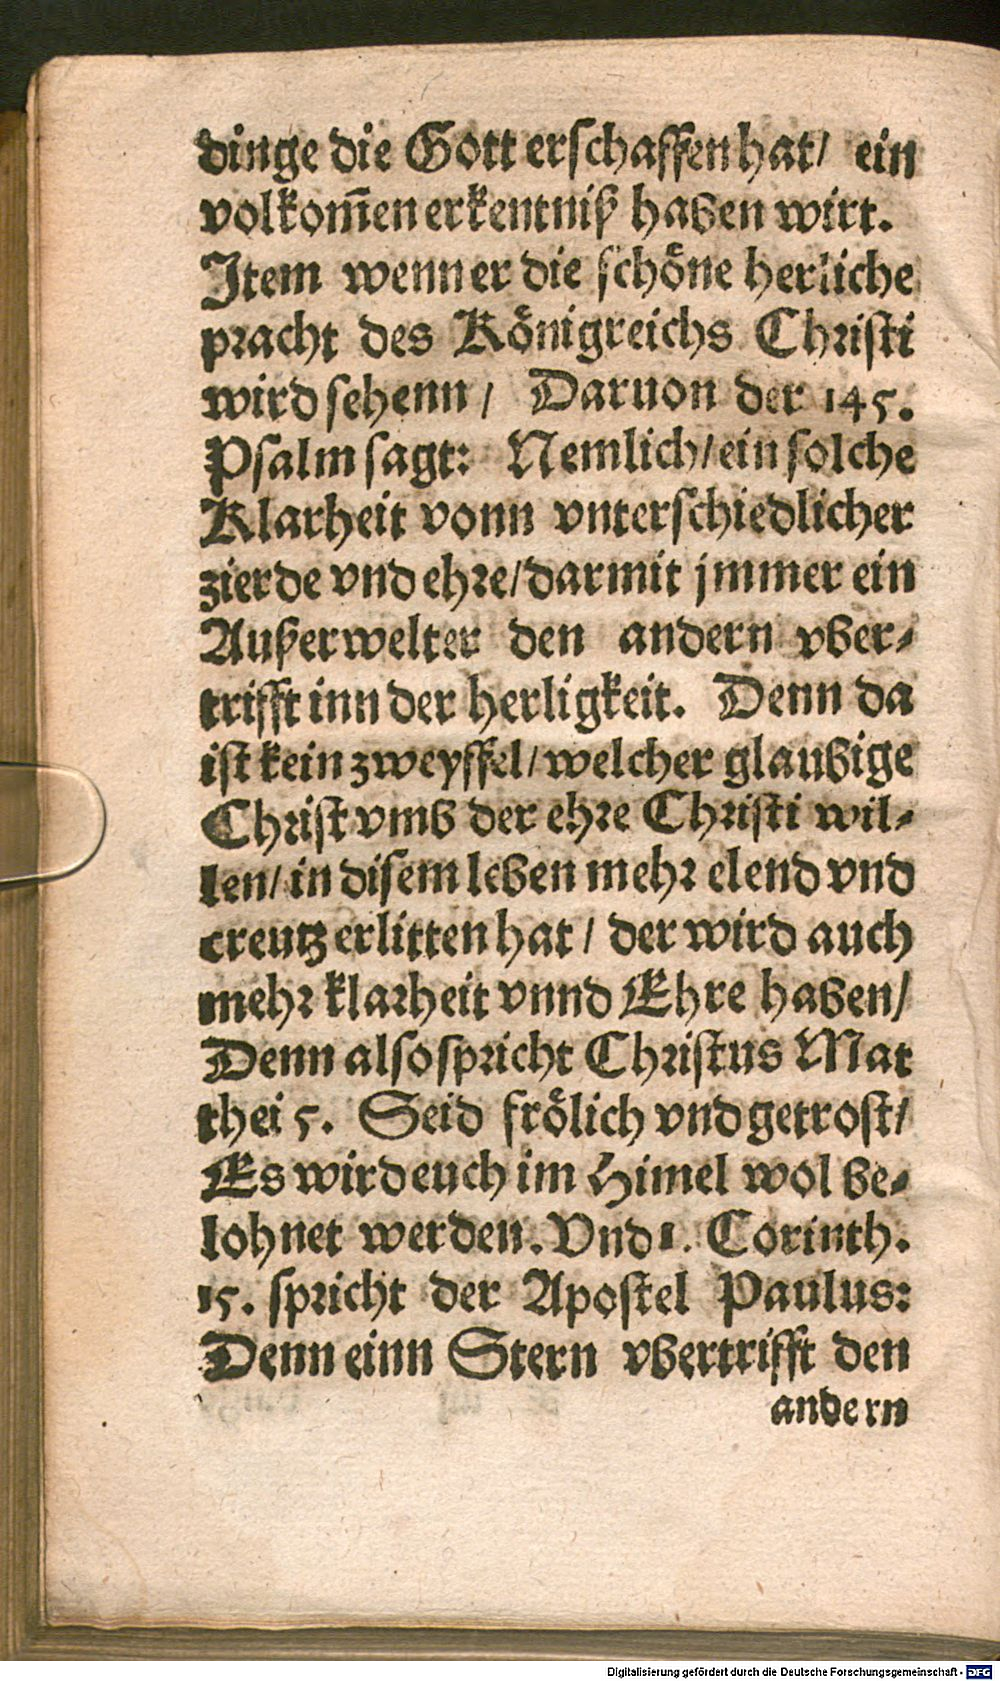 dinge die Gott erschaffen hat/ ein
volkom̃en erkentniß haben wirt.
Item wenn er die schöne herliche
pracht des Königreichs Christi
wird sehenn/ Daruon der 145.
Psalm sagt: Nemlich/ ein solche
Klarheit vonn vnterschiedlicher
zierde vnd ehre/ darmit jmmer ein
Außerwelter den andern vber⸗
trifft inn der herligkeit. Denn da
ist kein zweyffel/ welcher glaubige
Christ vmb der ehre Christi wil⸗
len/ in disem leben mehr elend vnd
creutz erlitten hat/ der wird auch
mehr klarheit vnnd Ehre haben/
Denn also spricht Christus Mat
thei 5. Seid frölich vnd getrost/
Es wird euch im Himel wol be⸗
lohnet werden. Vnd 1. Corinth.
15. spricht der Apostel Paulus:
Denn einn Stern vbertrifft den
andern
Digitalisierung gefördert durch die Deutsche Forschungsgemeinschaft - DFG